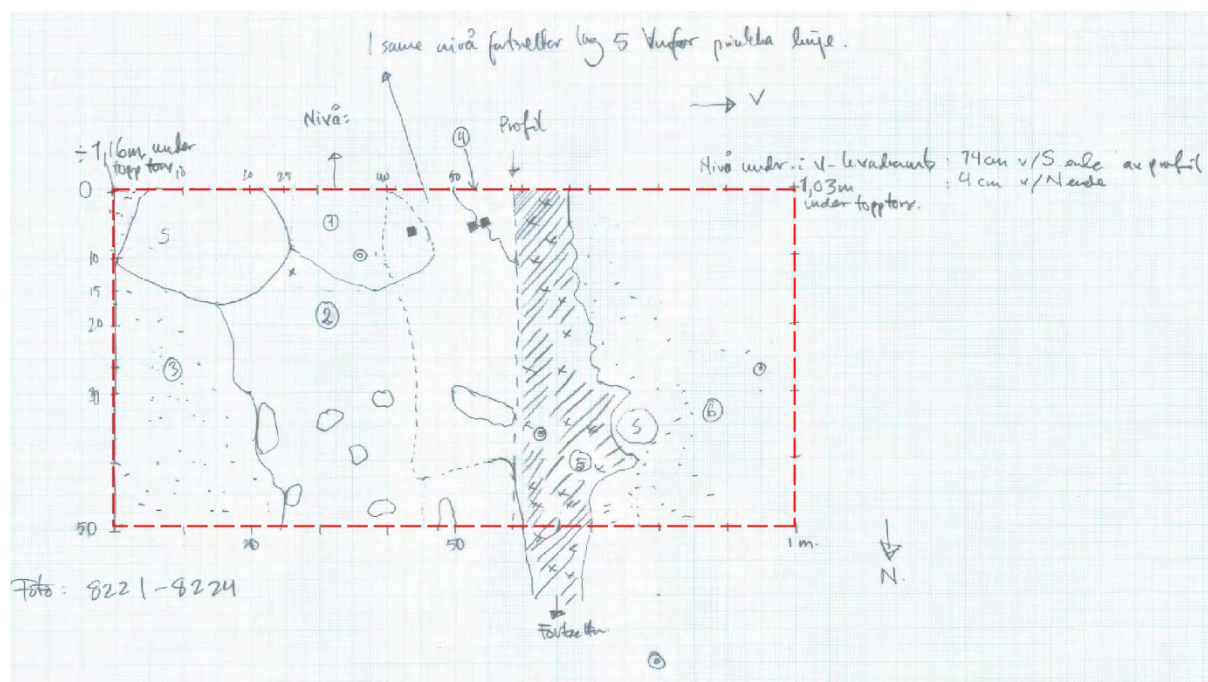 I same nivå fortsetter lag 5 innfor prikkha linje.
→ V
Nivå:
④
Profil
÷ 1,16m under
topp torv.
Nivå under i V-kvadrant: 74cm v/S ende av profil
÷1,03m : 4 cm v/N ende
under topp torv.
0 10 20 25 40 50
S
①
10
15
②
20
③
⑥
S
⑤
50
20 50 1 m.
N.
Foto: 8221-8224
Fortsetter